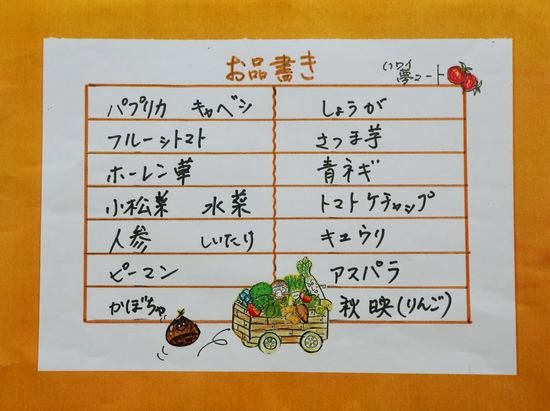 お品書き
ハワイ
夢コート
パプリカ キャベシ
しょうが
フルーシトマト
さつま芋
ホーレン草
青ネギ
小松菜 水菜
トマトケチャップ
人参 しいたけ
キュウリ
ピーマン
アスパラ
かぼちゃ
秋映(りんご)